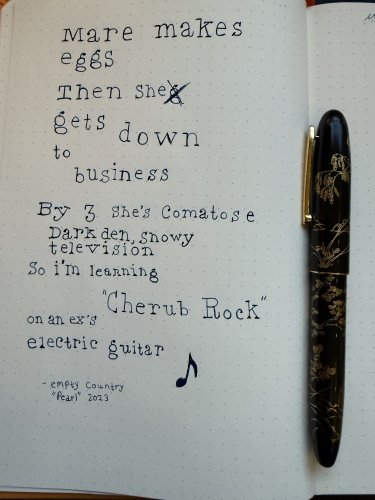 Mare makes
eggs
Then she
gets down
to
business
By 3 she's comatose
Dark den, snowy
television
So i'm learning
"Cherub Rock"
on an ex's
electric guitar
- empty country
"Pearl" 2023